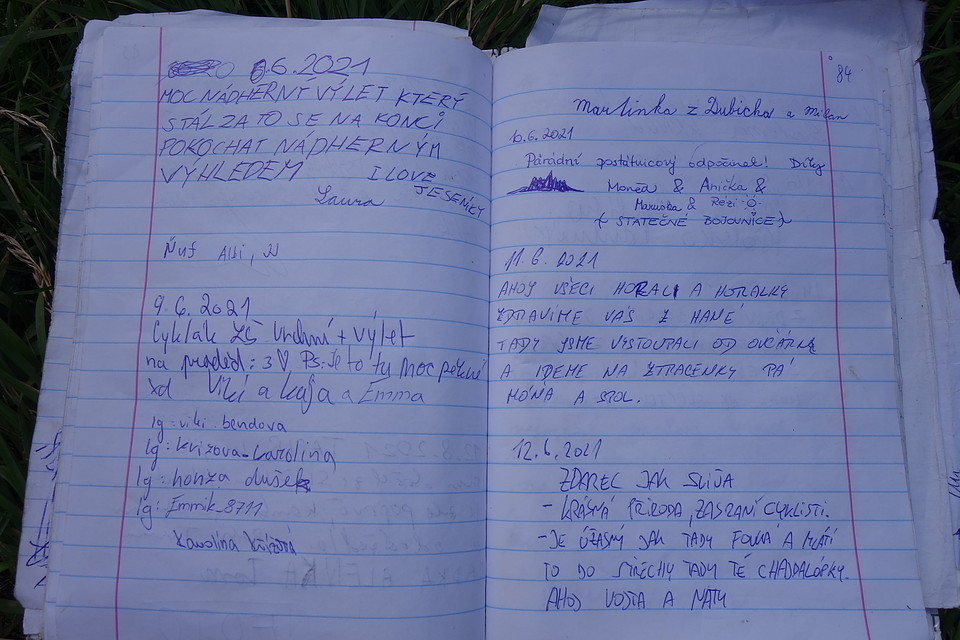 6.6.2021
MOC NÁDHERNÝ VÝLET KTERÝ
STÁL ZA TO SE NA KONCI
POKOCHAT NÁDHERNÝM
VÝHLEDEM I LOVE
JESENÍKY
Laura
Ňuf
9.6.2021
Cyklák ZŠ Vrdní + výlet
na praděd :3♡ Ps: Je to tu moc pěkné
xd Viki a Kája a Emma
Ig: viki.bendova
Ig: krizova_carolina
Ig: honza dušek
Ig: Emmik_8711
Karolína Křížová
84
Martinka z Dubicka a Milan
10.6.2021
Párádní postátnicový odpočinek! Díky
Monča & Anička &
Maruška & Rézi
{STATEČNÉ BOJOVNICE}
11.6.2021
AHOJ VŠECI HORALI A HORALKY
ZDRAVÍME VÁS Z HANÉ
TADY JSME VYSTOUPALI OD OVČÁRNE
A IDEME NA ZTRACENKY PÁ
MÓŇA A STOL.
12.6.2021
ZDAREC JAK SVIŇA
- KRÁSNÁ PŘÍRODA, ZASRANÍ CYKLISTI.
- JE ÚŽASNÝ JAK TADY FOUKÁ A MLÁTÍ
TO DO STŘECHY TADY TÉ CHAJDALOUPKY.
AHOJ VOJTA A MATU